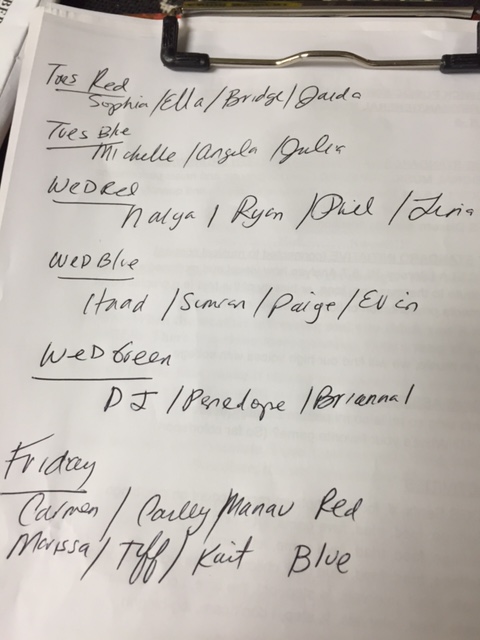 Tues Red
Sophia / Ella / Bridge / Jaida
Tues Blue
Michelle / Angela / Julia
WeD Red
Nalya / Ryan / /
WeD Blue
Haad / Simran / Paige / Evin
WeD Green
DJ / Penelope / Brianna /
Friday
Carmen / Carley / Manav Red
Marissa / Tiff / Kait Blue